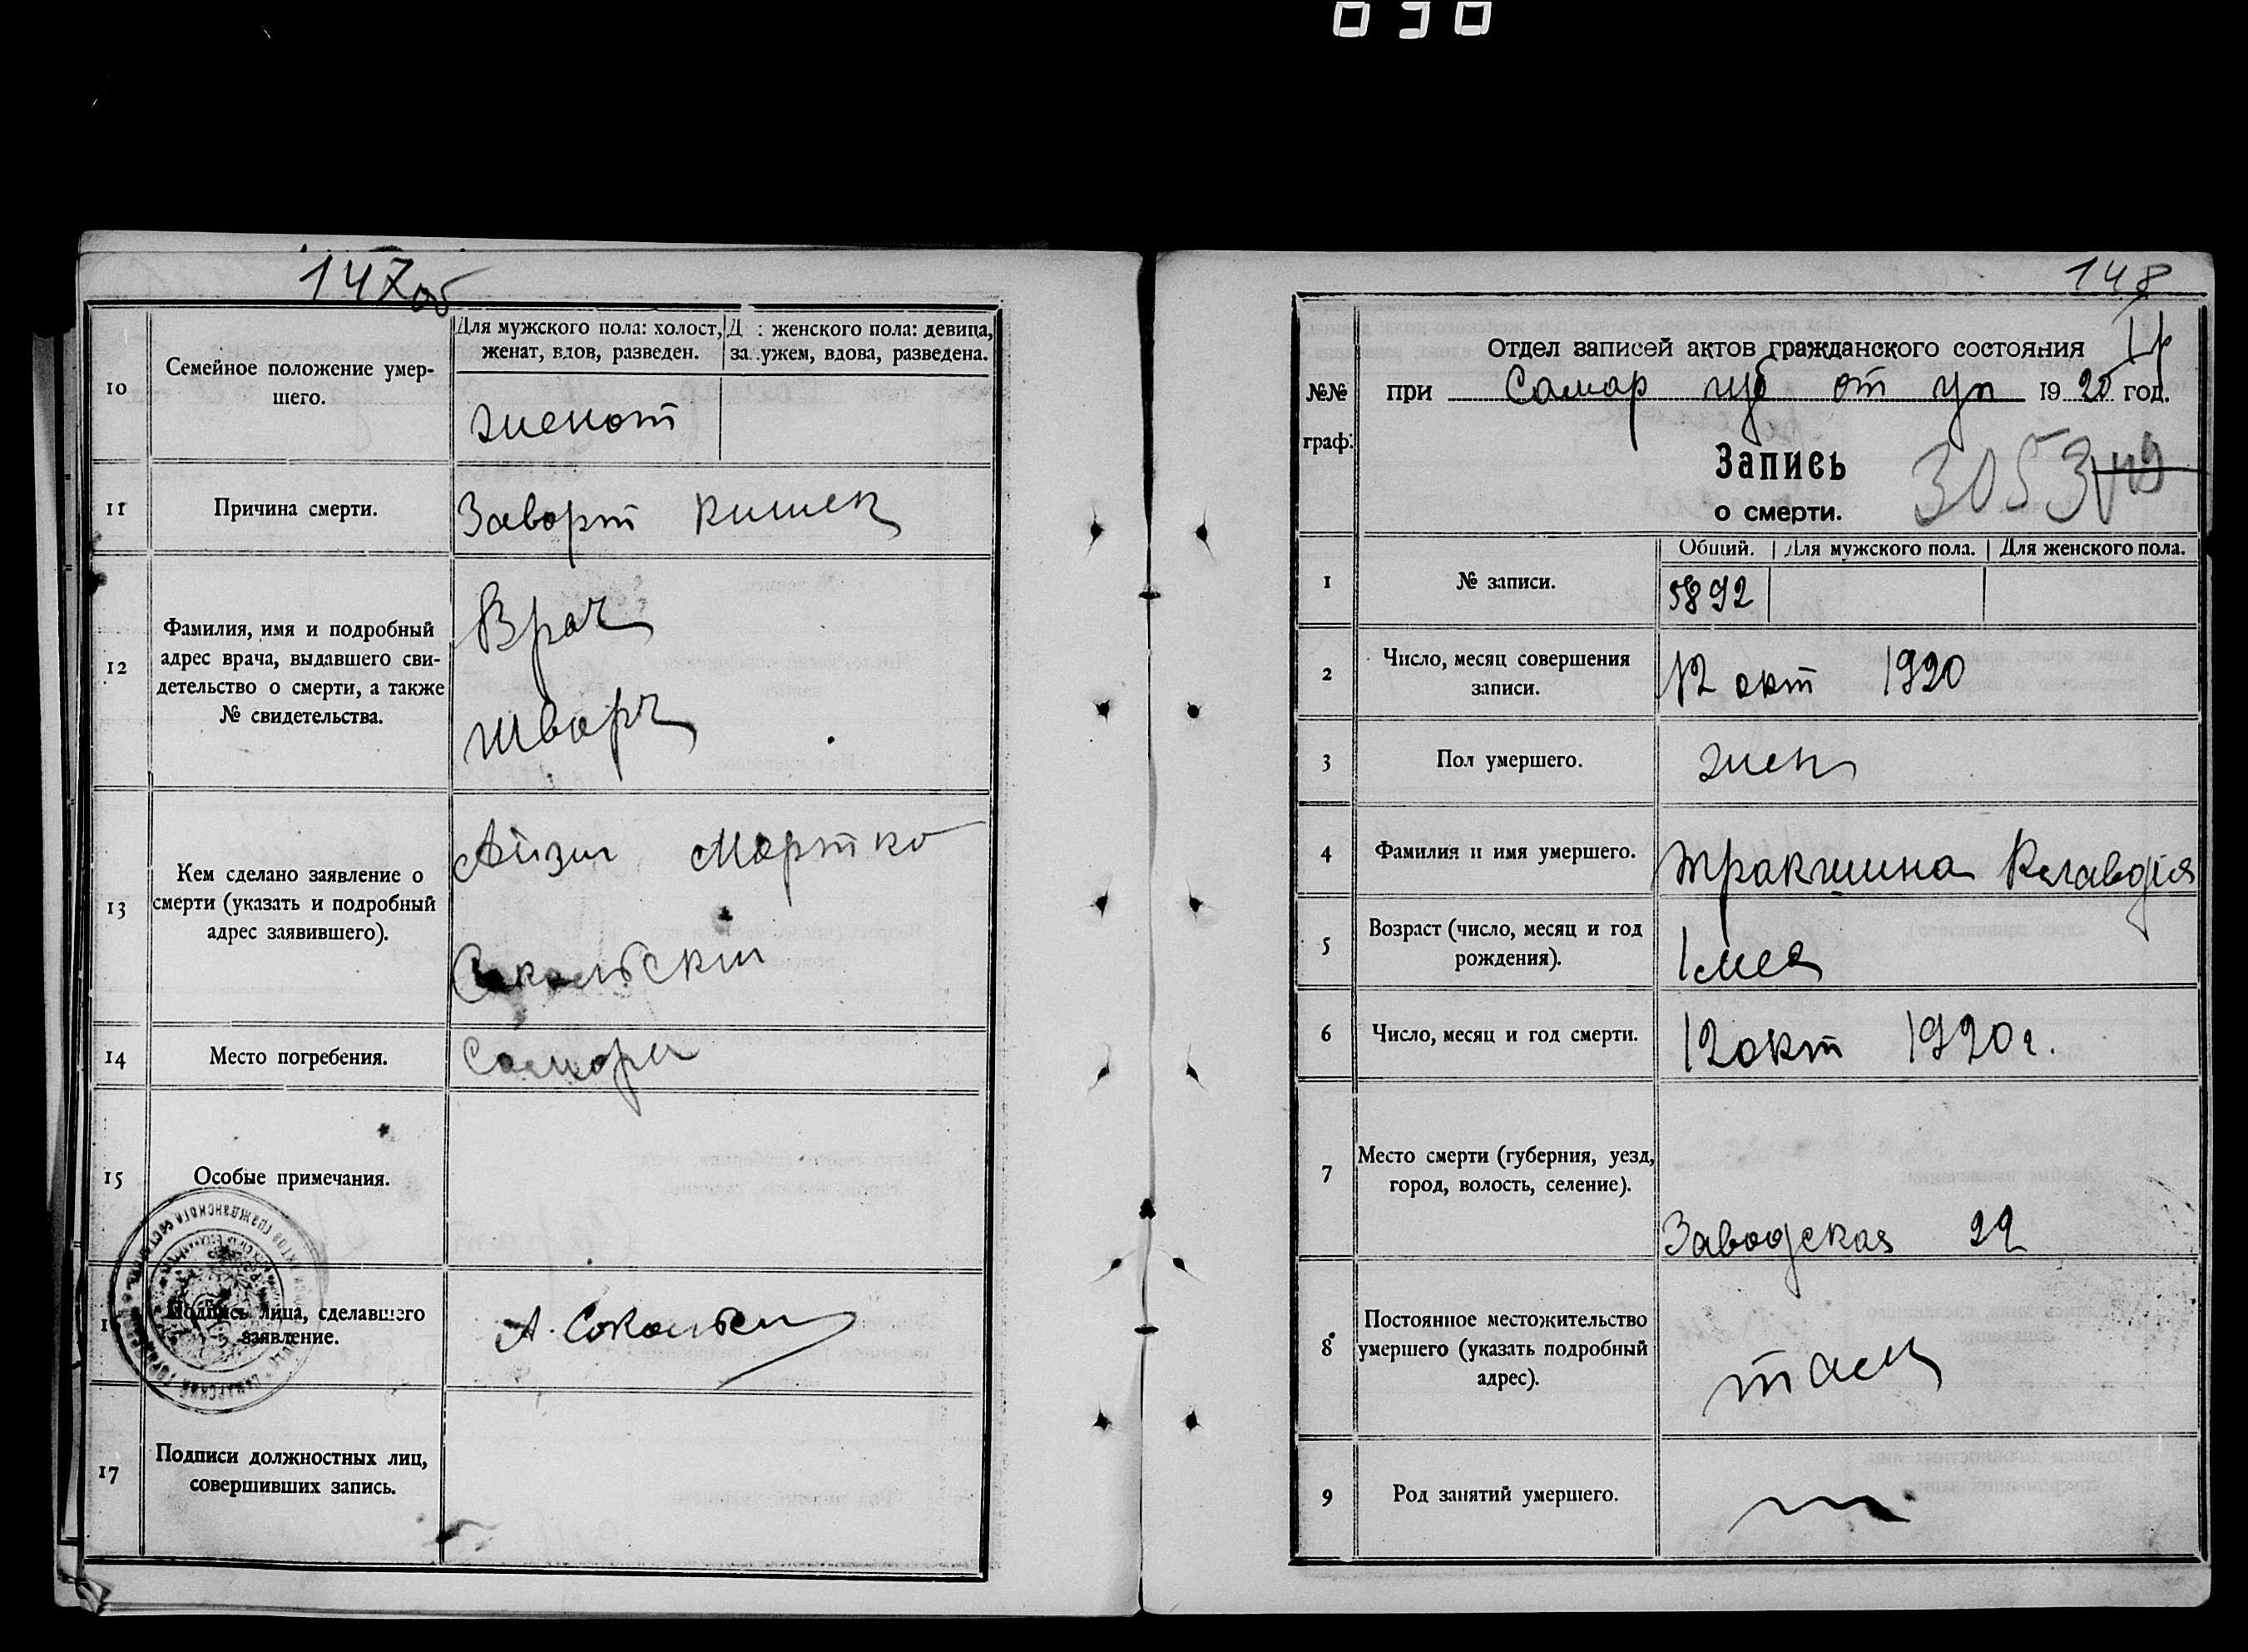 030
147об
10
Семейное положение умер-
шего.
Для мужского пола: холост,
женат, вдов, разведен.
женского пола: девица,
за ужем, вдова, разведена.
женат
11
Причина смерти.
Заворт кишек
12
Фамилия, имя и подробный
адрес врача, выдавшего сви-
детельство о смерти, а также
№ свидетельства.
Врач
Шварч
13
Кем сделано заявление о
смерти (указать и подробный
адрес заявившего).
Айзик
Сокольский
14
Место погребения.
Самара
15
Особые примечания.
Подпись лица, сделавшего
заявление.
А. Сокольский
17
Подписи должностных лиц,
совершивших запись.
148
№№
граф.
Отдел записей актов гражданского состояния
при Самар губ от уп 1920 год.
Запись
о смерти.
3053
1
№ записи.
Общий.
Для мужского пола.
Для женского пола.
5892
2
Число, месяц совершения
записи.
12 окт 1920
3
Пол умершего.
жен
4
Фамилия и имя умершего.
Тракшина Клавдія
5
Возраст (число, месяц и год
рождения).
1 мес
6
Число, месяц и год смерти.
12 окт 1920 г.
7
Место смерти (губерния, уезд,
город, волость, селение).
Заводская 22
8
Постоянное местожительство
умершего (указать подробный
адрес).
там
9
Род занятий умершего.